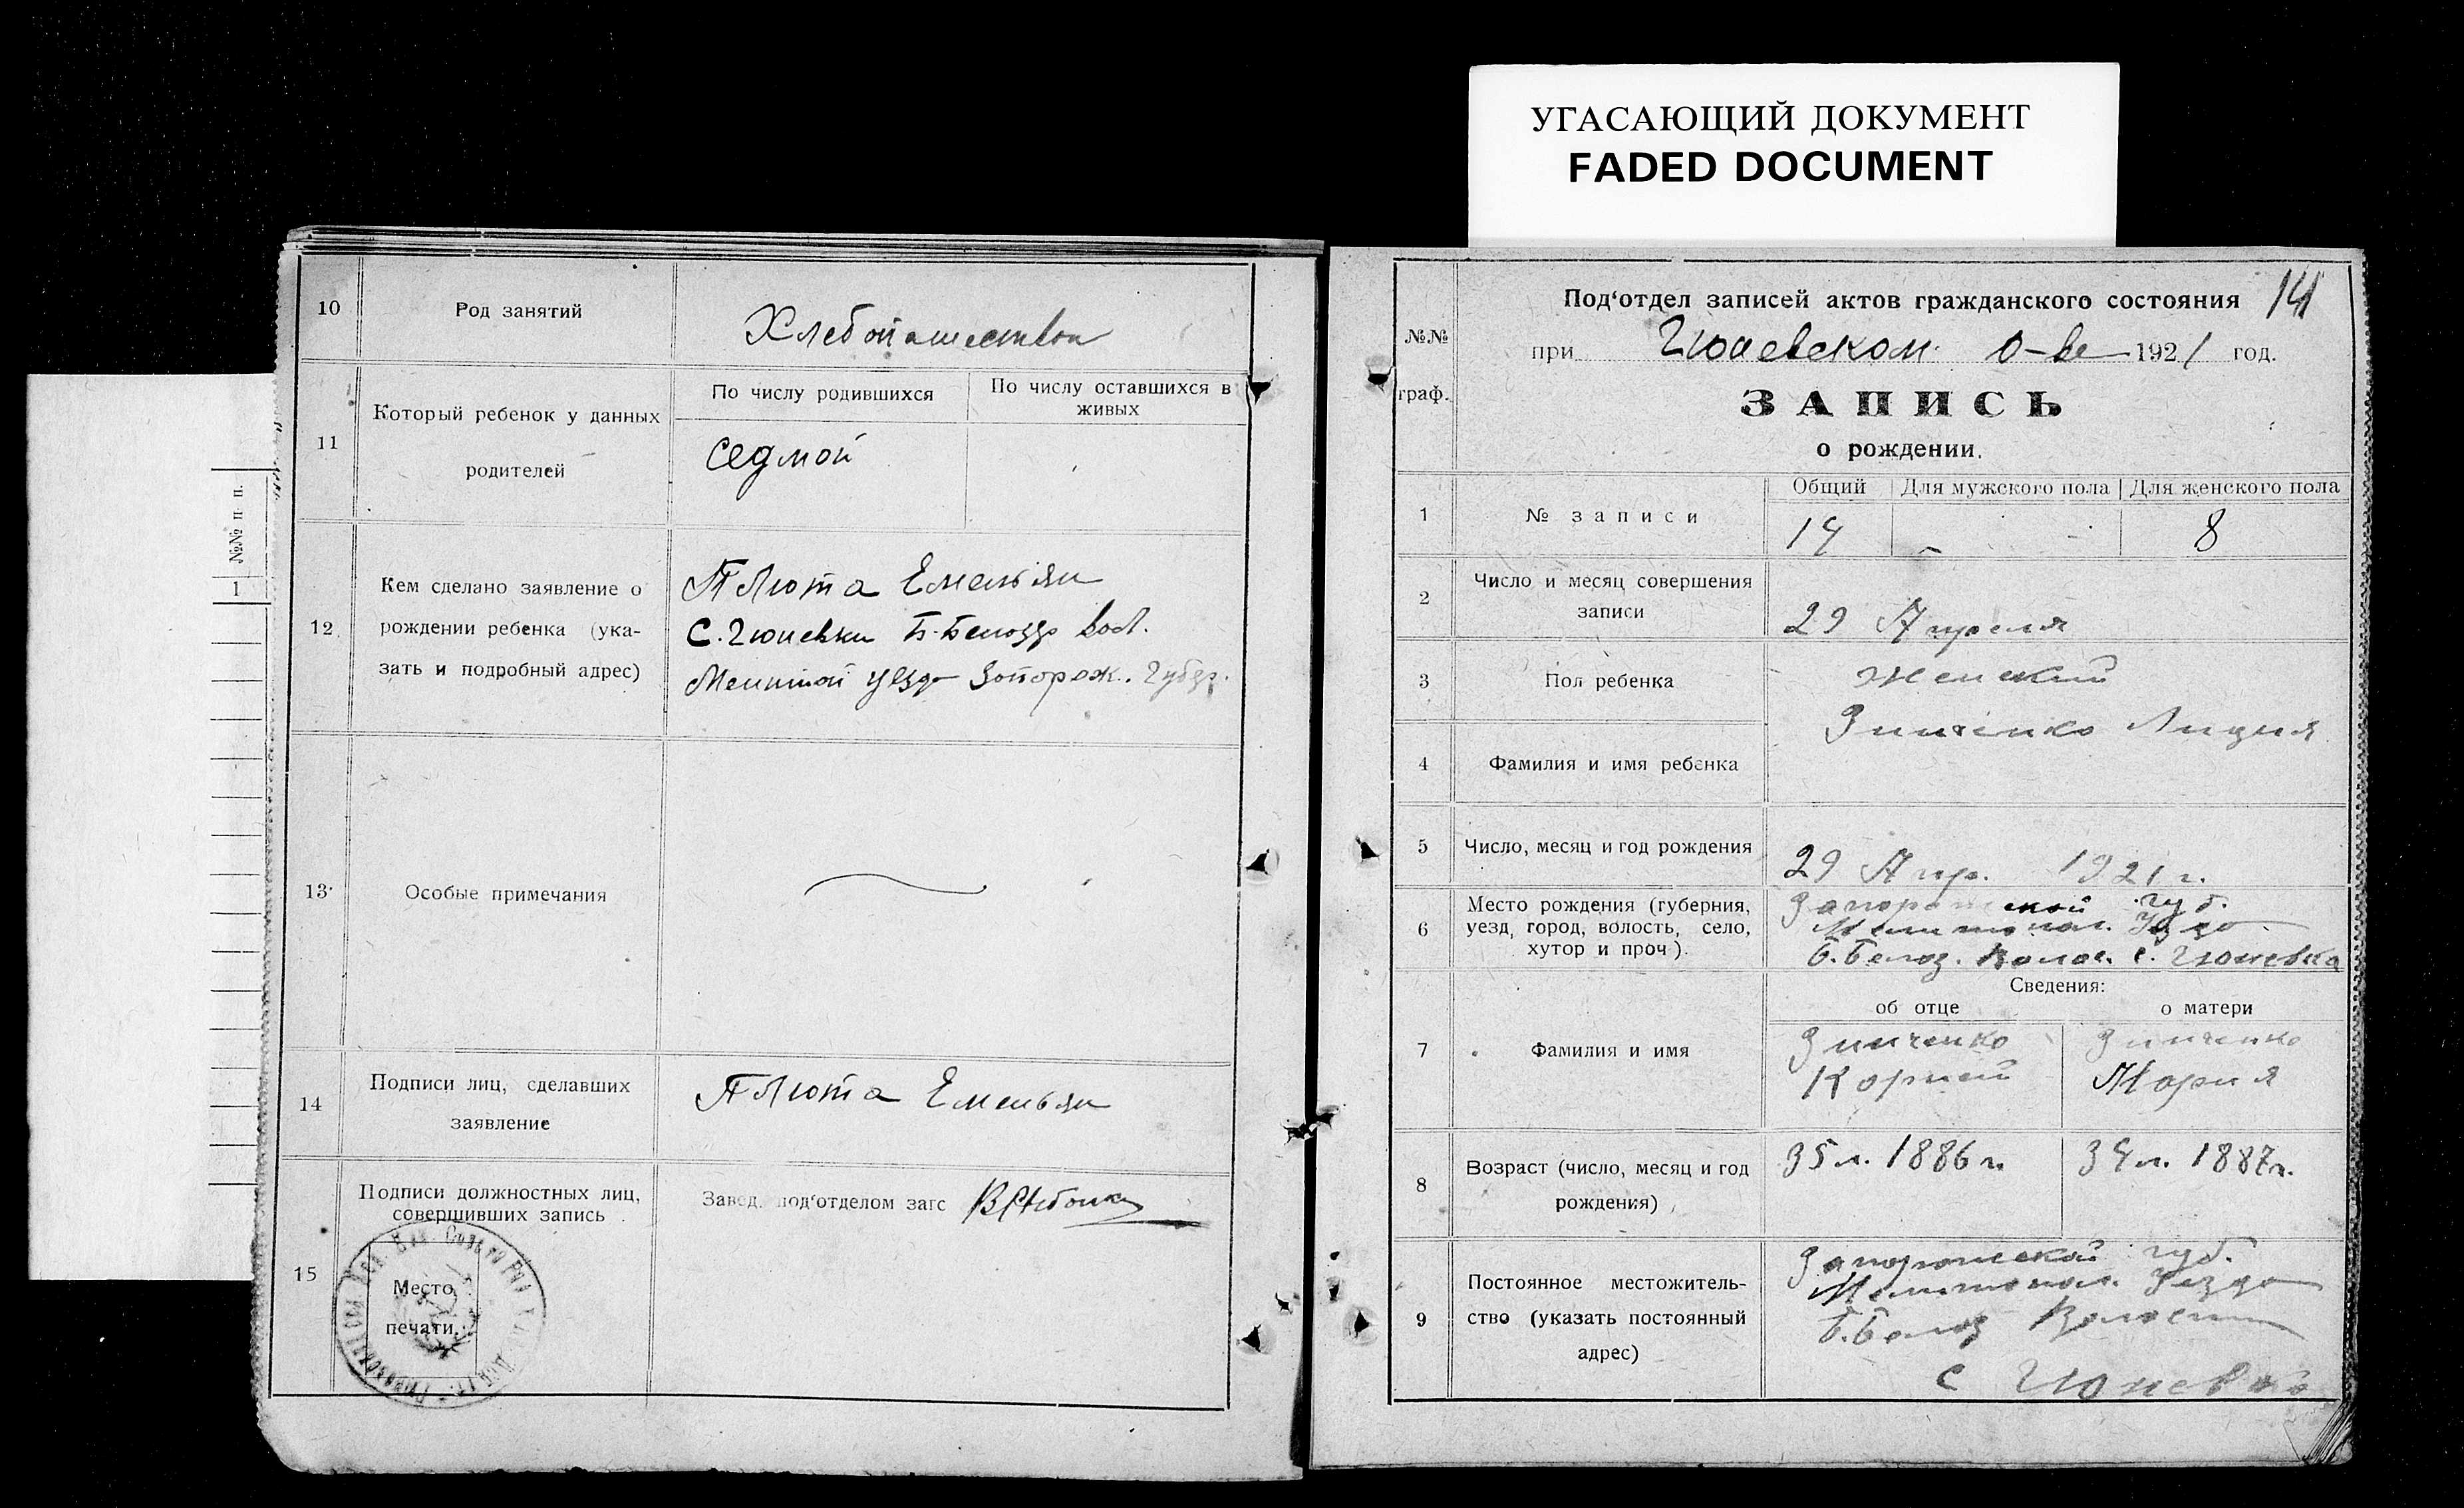 УГАСАЮЩИЙ ДОКУМЕНТ
FADED DOCUMENT
№№ п п.
1
10
Род занятий
Хлебопашество
11
Который ребенок у данных
родителей
По числу родившихся
По числу оставшихся в
живых
седмой
12
Кем сделано заявление о
рождении ребенка (ука-
зать и подробный адрес)
Плюта Емельян
С. Гюневки Б-Белозр вол.
уезд Запорож. Губер.
13
Особые примечания
14
Подписи лиц, сделавших
заявление
Плюта Емельян
15
Подписи должностных лиц,
совершивших запись
Место
печати.
Завед. под'отделом загс
№№
граф.
Под'отдел записей актов гражданского состояния
141
при Гюневском о-ве 1921 год.
ЗАПИСЬ
о рождении.
1
№ записи
Общий
Для мужского пола
Для женского пола
14
-
8
2
Число и месяц совершения
записи
29 Апреля
3
Пол ребенка
женский
4
Фамилия и имя ребенка
Зинченко Лидия
5
Число, месяц и год рождения
29 Апр. 1921 г.
6
Место рождения (губерния,
уезд, город, волость, село,
хутор и проч).
Запорожской губ.
Мелитопол. Уезда
Б.Белоз. Волос. с. Гюневка
Сведения:
об отце
о матери
7
Фамилия и имя
Зинченко
Корней
Зинченко
Мария
8
Возраст (число, месяц и год
рождения)
35 л. 1886 г.
34 л. 1887 г.
9
Постоянное местожитель-
ство (указать постоянный
адрес)
Запорожской губ.
Мелитопол. Уезда
Б.Белоз Волости
с Гюневка